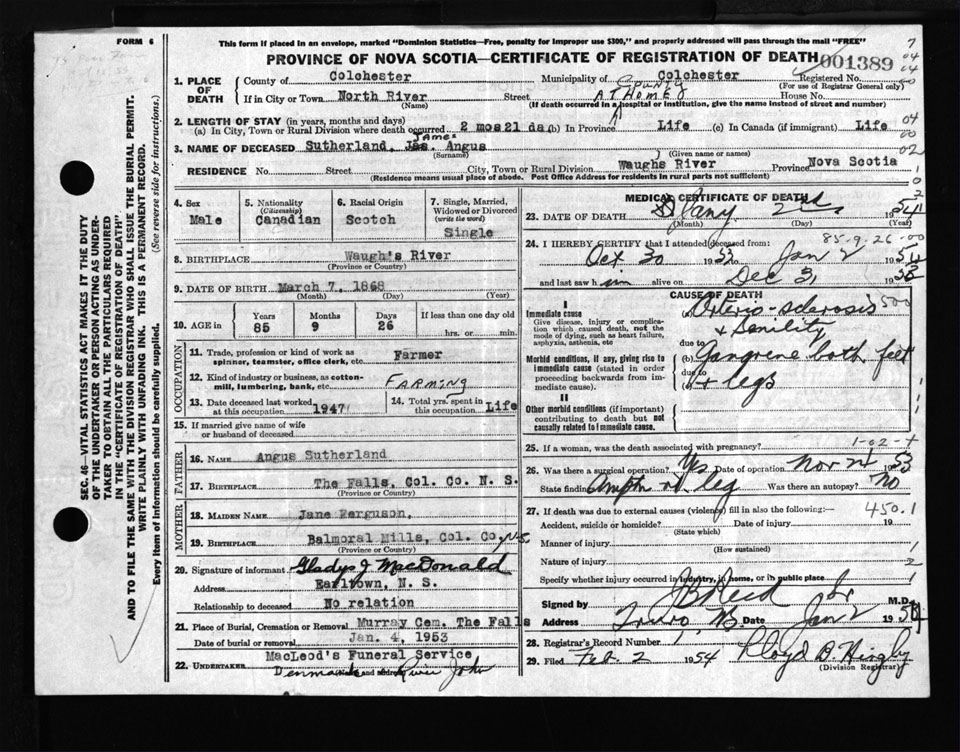 FORM 6
This form if placed in an envelope, marked "Dominion Statistics—Free, penalty for improper use $300," and properly addressed will pass through the mail "FREE"
PROVINCE OF NOVA SCOTIA—CERTIFICATE OF REGISTRATION OF DEATH
001389
1. PLACE OF DEATH
County of Colchester Municipality of Colchester Registered No.
(For use of Registrar General only)
If in City or Town North River Street County AT HOME House No.
(Name) (If death occurred in a hospital or institution, give the name instead of street and number)
2. LENGTH OF STAY (in years, months and days)
(a) In City, Town or Rural Division where death occurred 2 mos 21 da (b) In Province Life (c) In Canada (if immigrant) Life
3. NAME OF DECEASED Sutherland, Jas. James Angus
(Surname) (Given name or names)
RESIDENCE No. Street City, Town or Rural Division Waughs River Province Nova Scotia
(Residence means usual place of abode. Post Office Address for residents in rural parts not sufficient)
4. Sex Male
5. Nationality (Citizenship) Canadian
6. Racial Origin Scotch
7. Single, Married, Widowed or Divorced (write the word) Single
8. BIRTHPLACE Waugh's River
(Province or Country)
9. DATE OF BIRTH March 7, 1868
(Month) (Day) (Year)
10. AGE in Years 85 Months 9 Days 26 If less than one day old hrs. or min.
OCCUPATION
11. Trade, profession or kind of work as spinner, teamster, office clerk, etc. Farmer
12. Kind of industry or business, as cotton-mill, lumbering, bank, etc. FARMING
13. Date deceased last worked at this occupation 1947
14. Total yrs. spent in this occupation Life
15. If married give name of wife or husband of deceased
FATHER
16. NAME Angus Sutherland
17. BIRTHPLACE The Falls, Col. Co. N. S.
(Province or Country)
MOTHER
18. MAIDEN NAME Jane Ferguson,
19. BIRTHPLACE Balmoral Mills, Col. Co, N.S.
(Province or Country)
20. Signature of informant Gladys J MacDonald
Address Earltown, N. S.
Relationship to deceased No relation
21. Place of Burial, Cremation or Removal Murray Cem. The Falls
Date of burial or removal Jan. 4, 1953
22. UNDERTAKER MacLeod's Funeral Service
(Name and address) Denmark River John
MEDICAL CERTIFICATE OF DEATH
23. DATE OF DEATH Jany 2nd 1954
(Month) (Day) (Year)
85-9-26-00
24. I HEREBY CERTIFY that I attended deceased from:
Oct 30 1953 Jan 2 1954
and last saw him alive on Dec 31 1953
CAUSE OF DEATH
I
Immediate cause
Give disease, injury or complication which caused death, not the mode of dying, such as heart failure, asphyxia, asthenia, etc
Arterio-sclerosis
+ Senility
500
Morbid conditions, if any, giving rise to immediate cause (stated in order proceeding backwards from immediate cause).
due to
(b) Gangrene both feet
due to
+ legs
II
Other morbid conditions (if important) contributing to death but not causally related to immediate cause.
25. If a woman, was the death associated with pregnancy?
1-02-+
26. Was there a surgical operation? Yes Date of operation Nov 21 1953
State finding Amptn rt. leg Was there an autopsy? No
27. If death was due to external causes (violence) fill in also the following:—
450.1
Accident, suicide or homicide? Date of injury 19
(State which)
Manner of injury
(How sustained)
Nature of injury
Specify whether injury occurred in industry, in home, or in public place
Signed by J B Reid Jr M.D.
Address Truro, NS Date Jan 2 1954
28. Registrar's Record Number 1
29. Filed Feb. 2 1954 Lloyd B.
(Division Registrar)
SEC. 46—VITAL STATISTICS ACT MAKES IT THE DUTY OF THE UNDERTAKER OR PERSON ACTING AS UNDERTAKER TO OBTAIN ALL THE PARTICULARS REQUIRED IN THE "CERTIFICATE OF REGISTRATION OF DEATH" AND TO FILE THE SAME WITH THE DIVISION REGISTRAR WHO SHALL ISSUE THE BURIAL PERMIT.
WRITE PLAINLY WITH UNFADING INK. THIS IS A PERMANENT RECORD.
Every item of information should be carefully supplied. (See reverse side for instructions.)